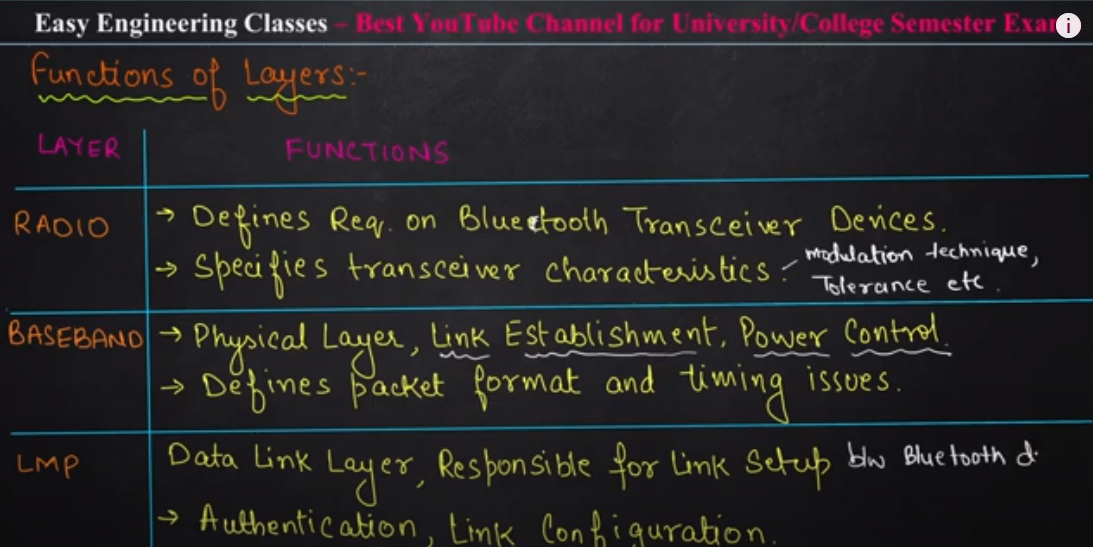 Easy Engineering Classes – Best YouTube Channel for University/College Semester Exam
Functions of Layers:-
LAYER FUNCTIONS
RADIO → Defines Req. on Bluetooth Transceiver Devices.
→ Specifies transceiver characteristics : modulation technique,
Tolerance etc.
BASEBAND → Physical Layer, Link Establishment, Power Control.
→ Defines packet format and timing issues.
LMP Data Link Layer, Responsible for Link Setup b/w Bluetooth d
→ Authentication, Link Configuration.